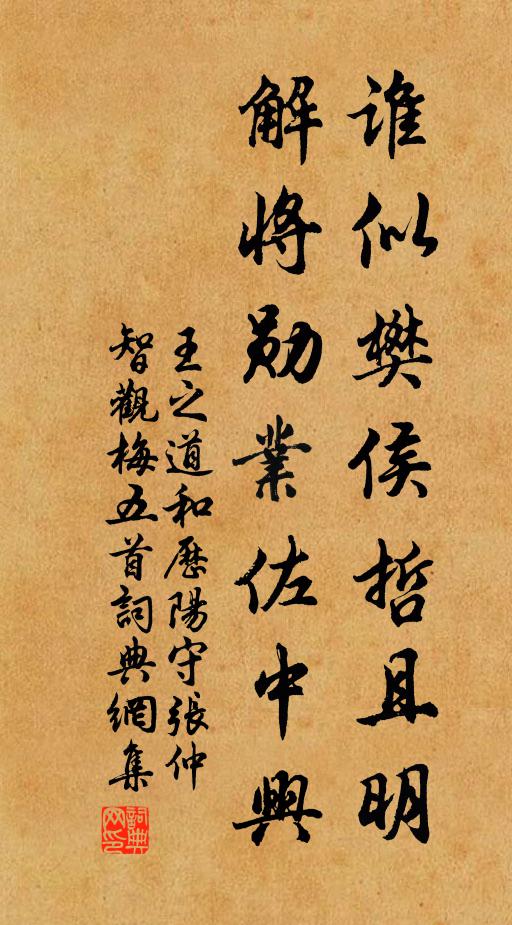 谁似樊侯哲且明
解将勋業佐中興
王之道和歷陽守張仲
智觀梅五首詞典網集
詞典
网印